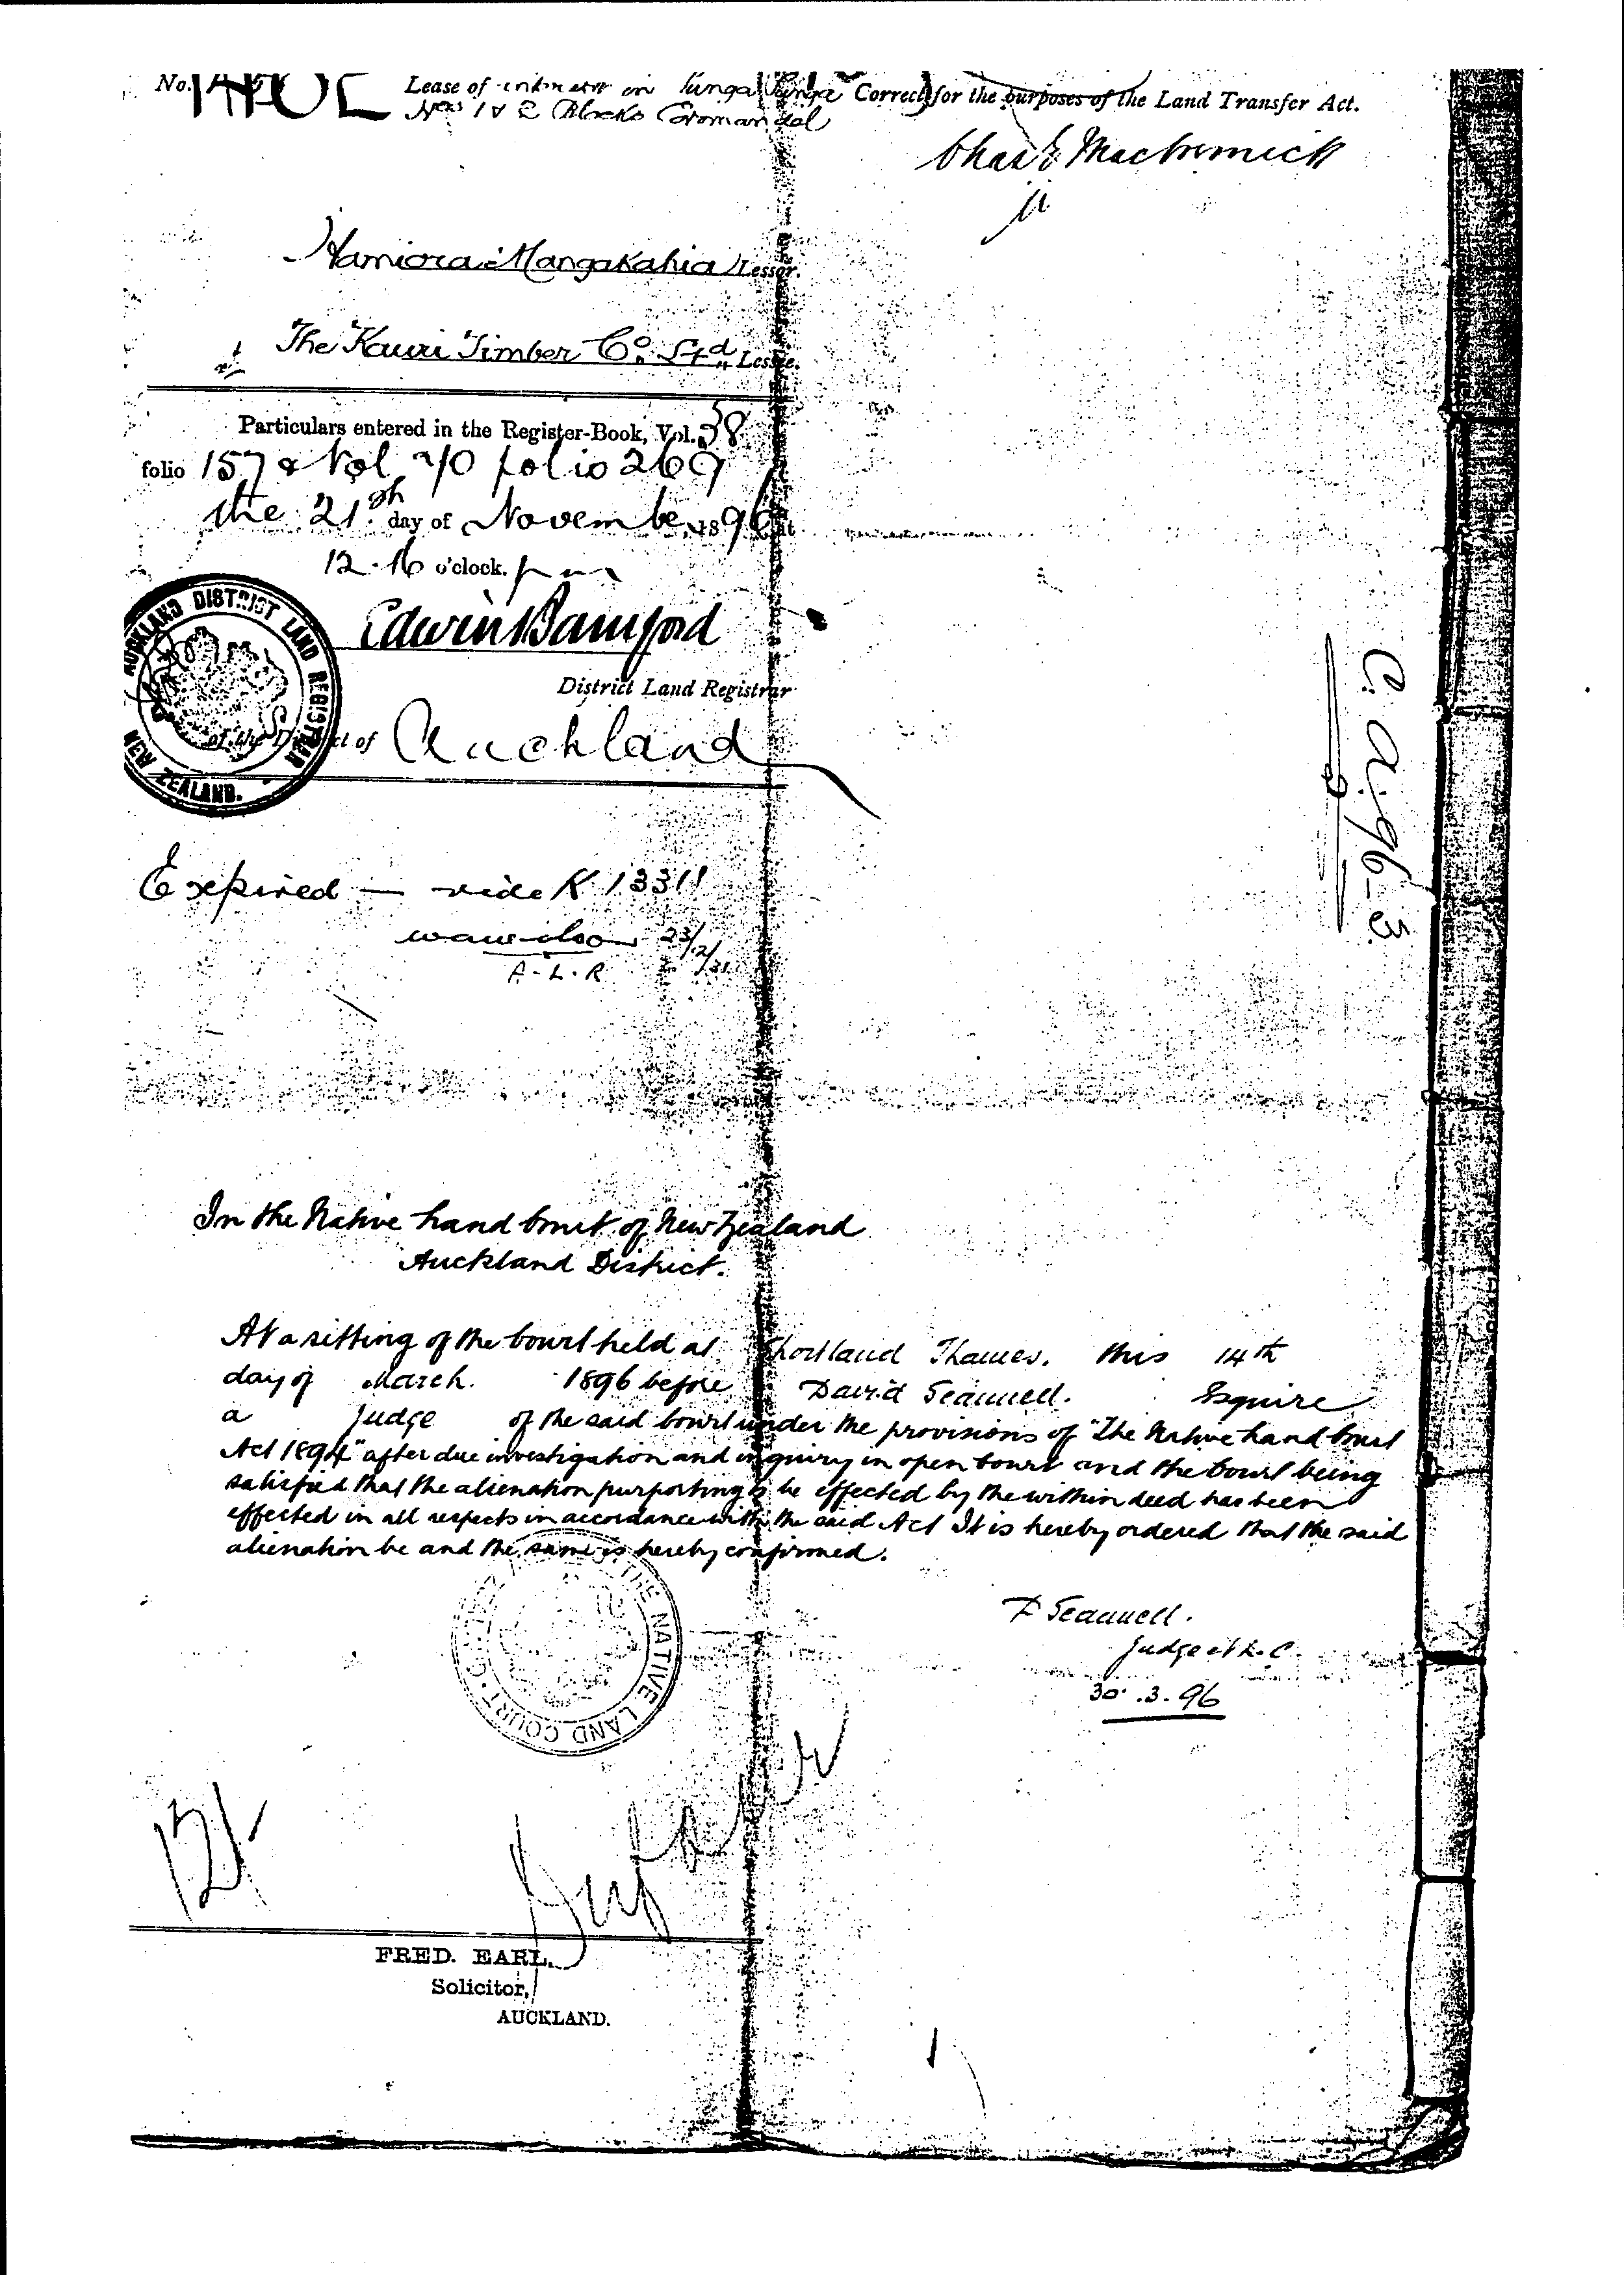 No.
Lease of interest in Tunga Punga
Nos 1 & 2 Blocks Coromandel
Correct for the purposes of the Land Transfer Act.
Hamiora Mangakahia Lessor.
The Kauri Timber Co. Ltd. Lessee.
Particulars entered in the Register-Book, Vol. 38
folio 157 & Vol 70 folio 269
the 21st day of November 1896 at
12.16 o'clock. pm
Edwin Bamford
District Land Registrar
of the District of Auckland
AUCKLAND DISTRICT LAND REGISTRAR
NEW ZEALAND.
C. A. 96-3
Expired — vide K 13311
23/2/31
A.L.R
In the Native Land Court of New Zealand
Auckland District.
At a sitting of the Court held at Shortland Thames. this 14th
day of March. 1896 before David Scannell. Esquire
a Judge of the said Court under the provisions of "The Native Land Court
Act 1894" after due investigation and inquiry in open Court and the Court being
satisfied that the alienation purporting to be effected by the within deed has been
effected in all respects in accordance with the said Act It is hereby ordered that the said
alienation be and the same is hereby confirmed.
THE NATIVE LAND COURT
D Scannell.
Judge N.L.C.
30.3.96
FRED. EARL,
Solicitor,
AUCKLAND.